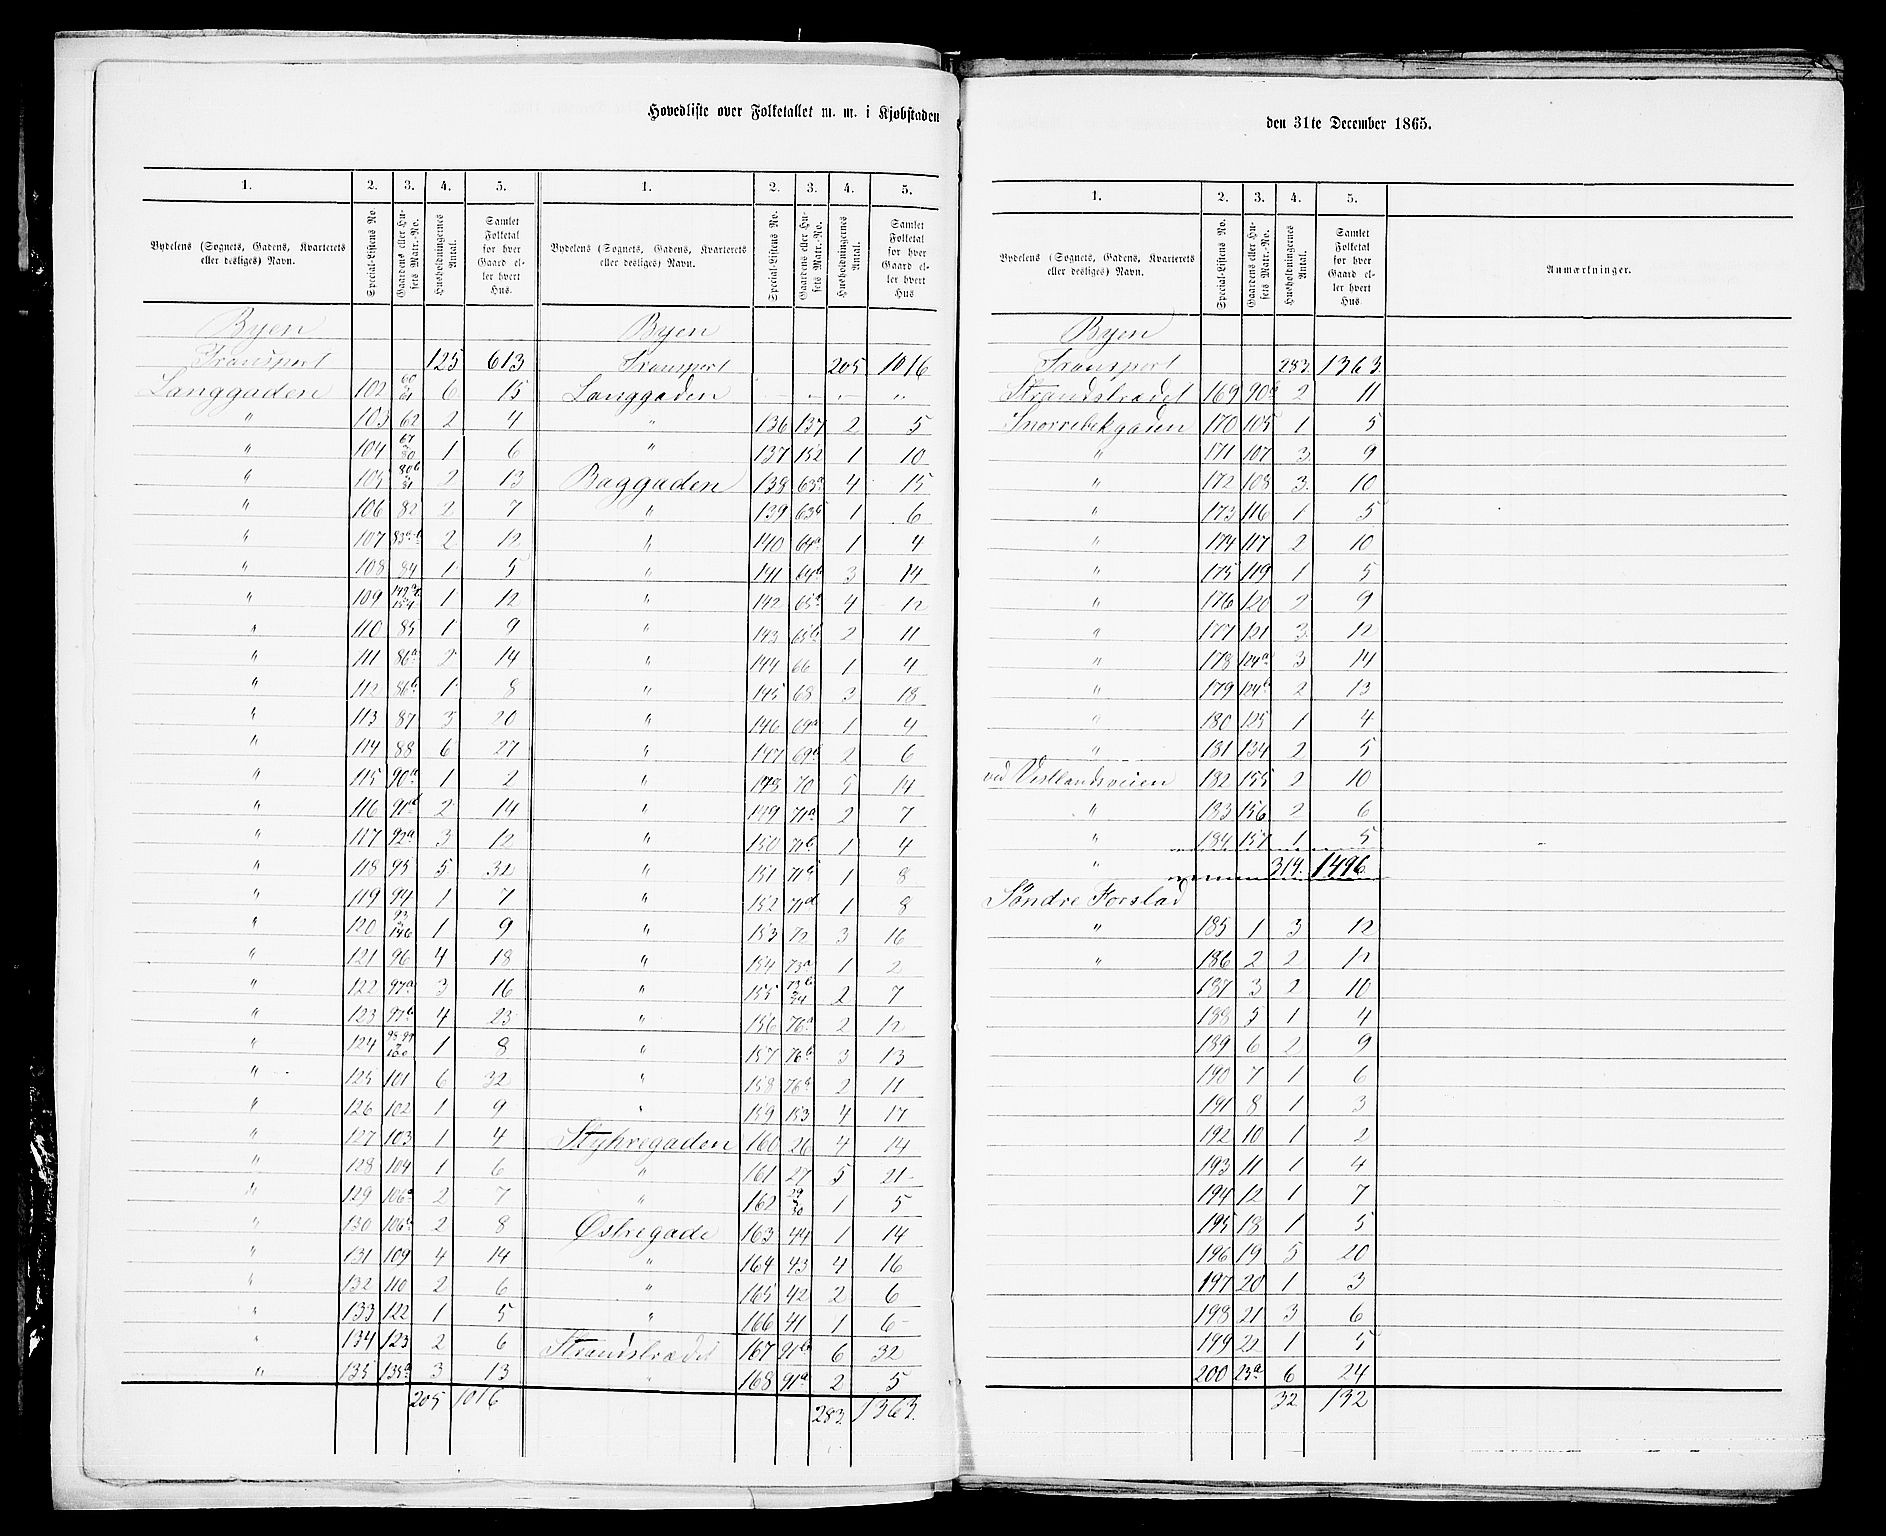 Hovedliste over Folketallet m. m. i Kjøbstaden
den 31te December 1865.
1. 2. 3. 4. 5. 1. 2. 3. 4. 5.
Bydelens (Sognets, Gadens, Kvarterets eller desliges) Navn. Special-Listens No. Gaardens eller Husets Matr.-No. Husholdningernes Antal. Samlet Folketal for hver Gaard eller hvert Hus.
Byen
Transport 125 613
Langgaden 102 60 61 6 15
" 103 62 2 4
" 104 67 80 1 6
" 105 80b 81 2 13
" 106 82 2 7
" 107 83a-b 2 12
" 108 84 1 5
" 109 149a 154 1 12
" 110 85 1 9
" 111 86a 2 14
" 112 86b 1 8
" 113 87 3 20
" 114 88 6 27
" 115 90a 1 2
" 116 91d 2 14
" 117 92a 3 12
" 118 95 5 32
" 119 94 1 7
" 120 93 146 1 9
" 121 96 4 18
" 122 97a 3 16
" 123 97b 4 23
" 124 98 99 100 1 8
" 125 101 6 32
" 126 102 1 9
" 127 103 1 4
" 128 104 1 6
" 129 106a 2 7
" 130 106b 2 8
" 131 109 4 14
" 132 110 2 6
" 133 122 1 5
" 134 123 2 6
" 135 135a 3 13
205 1016
Bydelens (Sognets, Gadens, Kvarterets eller desliges) Navn. Special-Listens No. Gaardens eller Husets Matr.-No. Husholdningernes Antal. Samlet Folketal for hver Gaard eller hvert Hus
Byen
Transport 205 1016
Langgaden
" 136 137 2 5
" 137 152 1 10
Baggaden 138 63a 4 15
" 139 63b 1 6
" 140 64a 1 4
" 141 64b 3 14
" 142 65a 4 12
" 143 65b 2 11
" 144 66 1 4
" 145 68 3 18
" 146 69a 1 4
" 147 69b 2 6
" 148 70 5 14
" 149 71a 2 7
" 150 71b 1 4
" 151 71c 1 8
" 152 71d 1 8
" 153 72 3 16
" 154 73a 1 2
" 155 73b 74 2 7
" 156 76a 2 12
" 157 76b 3 13
" 158 76c 2 11
" 159 153 4 17
Styhregaden 160 26 4 14
" 161 27 5 21
" 162 29 30 1 5
Østregade 163 44 1 14
" 164 43 4 16
" 165 42 2 6
" 166 41 1 6
Strandstrædet 167 91b 6 32
" 168 91a 2 5
283. 1363.
1. 2. 3. 4. 5.
Bydelens (Sognets, Gadens, Kvarterets eller desliges) Navn. Special-Listens No. Gaardens eller Husets Matr.-No. Husholdningernes Antal. Samlet Folketal for hver Gaard eller hvert Hus. Anmærkninger.
Byen
Transport 283. 1363.
Strandstrædet 169 90b 2 11
Snorrebekgaden 170 105 1 5
" 171 107 3 9
" 172 108 3. 10
" 173 116 1 5
" 174 117 2 10
" 175 119 1 5
" 176 120 2 9
" 177 121 3 12
" 178 124a 3 14
" 179 124b 2 13
" 180 125 1 4
" 181 134 2 5
ved Vestlandsveien 182 155 2 10
" 183 156 2 6
" 184 157 1 5
" 314. 1496.
Søndre Forstad
" 185 1 3 12
" 186 2 2 12
187 3 2 10
188 5 1 4
189 6 2 9
190 7 1 6
191 8 1 3
192 10 1 2
193 11 1 4
194 12 1 7
195 18 1 5
196 19 5 20
197 20 1 3
198 21 3 6
199 22 1 5
200 23a 6 24
32 132